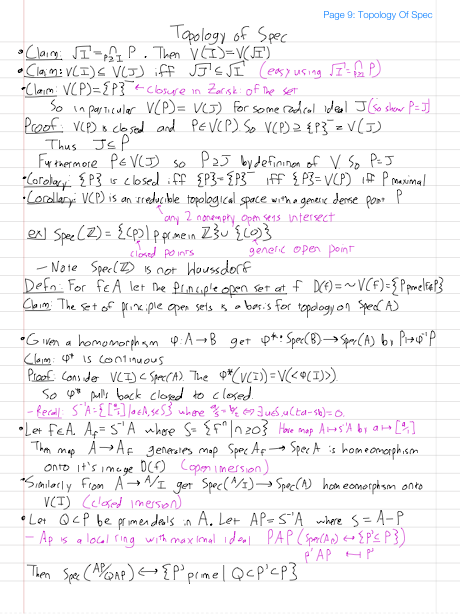 Page 9: Topology Of Spec
Topology of Spec
• Claim: √I = ∩ P⊇I P. Then V(I)=V(√I)
• Claim: V(I) ⊆ V(J) iff √J ⊆ √I (easy using √I = ∩ P⊇I P)
• Claim: V(P) = {P}⁻ ← closure in Zariski of the set
So in particular V(P) = V(J) for some radical ideal J (so show P=J)
Proof: V(P) is closed and P∈V(P). So V(P) ⊇ {P}⁻ = V(J)
Thus J⊆P
Furthermore P∈V(J) so P⊇J by definition of V So P=J
• Corolary: {P} is closed iff {P}={P}⁻ iff {P}=V(P) iff P maximal
• Corollary: V(P) is an irreducible topological space with a generic dense point P
any 2 nonempty open sets intersect
ex| Spec(ℤ) = {(p) | p prime in ℤ} ∪ {(0)}
closed points generic open point
– Note Spec(ℤ) is not Hausdorf
Defn: For f∈A let the Principle open set at f D(f) = ~V(f) = {P prime | f∉P}
Claim: The set of principle open sets is a basis for topology on Spec(A)
• Given a homomorphism φ: A→B get φ*: Spec(B)→Spec(A) by P↦φ⁻¹P
Claim: φ* is continuous
Proof: Consider V(I)⊂Spec(A). The φ*(V(I)) = V(<φ(I)>).
So φ* pulls back closed to closed.
– Recall: S⁻¹A = {[a/s] | a∈A, s∈S} where a/s = b/t ⇔ ∃u∈S, u(ta-sb)=0.
• Let f∈A. A_f = S⁻¹A where S = {fⁿ | n≥0} Have map A↦S⁻¹A by a↦[a/1]
Then map A→A_f generates map Spec A_f → Spec A is homeomorphism
onto it's image D(f) (open imersion)
• Similarly from A→A/I get Spec(A/I)→Spec(A) homeomorphism onto
V(I) (closed imersion)
• Let Q⊂P be prime ideals in A. Let AP = S⁻¹A where S = A-P
– Ap is a local ring with maximal ideal PAP (Spec(Ap) ↔ {P'⊆P})
P'AP ↔ P'
Then Spec(AP/QAP) ↔ {P' prime | Q⊂P'⊂P}